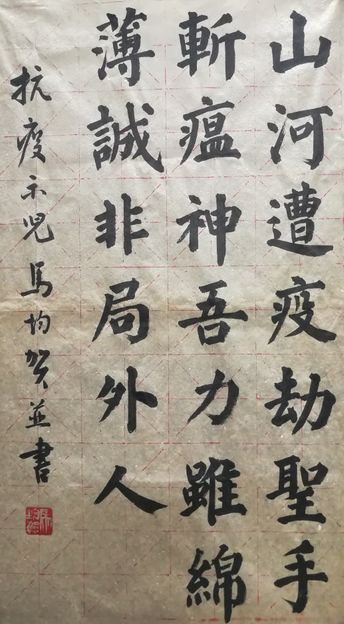 山河遭疫劫聖手
斬瘟神吾力雖綿
薄誠非局外人
抗疫示児馬均賀並書